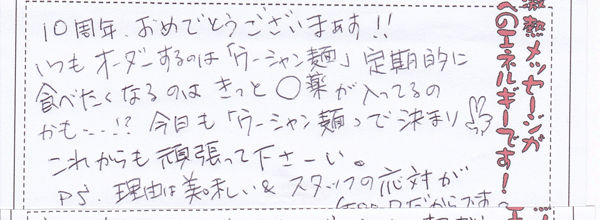 10周年、おめでとうございまぁす!!
いつもオーダーするのは「ウーシャン麺」定期的に
食べたくなるのは きっと〇薬が入ってるの
かも・・・!? 今日も「ウーシャン麺」で決まり
これからも頑張って下さーい。
PS. 理由は美味しい& スタッフの応対が
GOODだからです。
激熱メッセージが
へのエネルギーです!